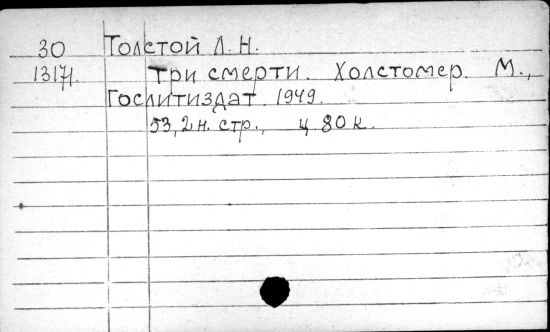 30 Толстой Л. Н.
Три смерти. Холстомер. М.,
Гослитиздат. 1949.
53, 2 н. стр., ц. 80 к.